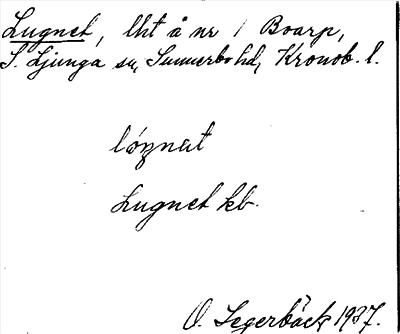 Lugnet, lht å nr 1 Boarp,
S. Ljunga sn, Sunnerbo hd, Kronob. l.
Lugnet kb.
O. Segerbäck 1937.